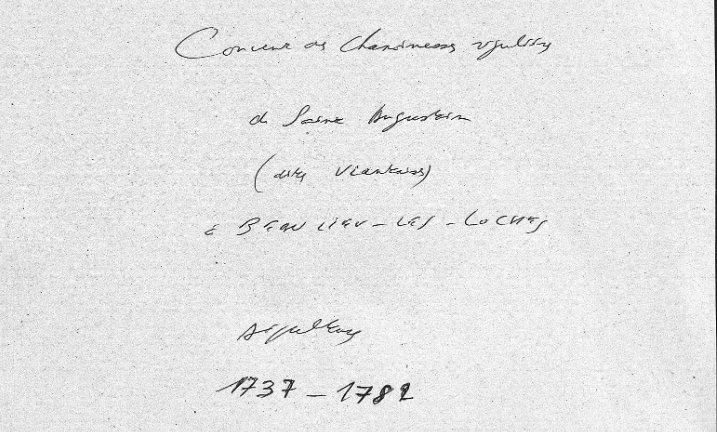 Couvent des Chanoinesses régulières
de Saint Augustin
(dites Viantaises)
à BEAULIEU-LES-LOCHES
Sépultures
1737 - 1782